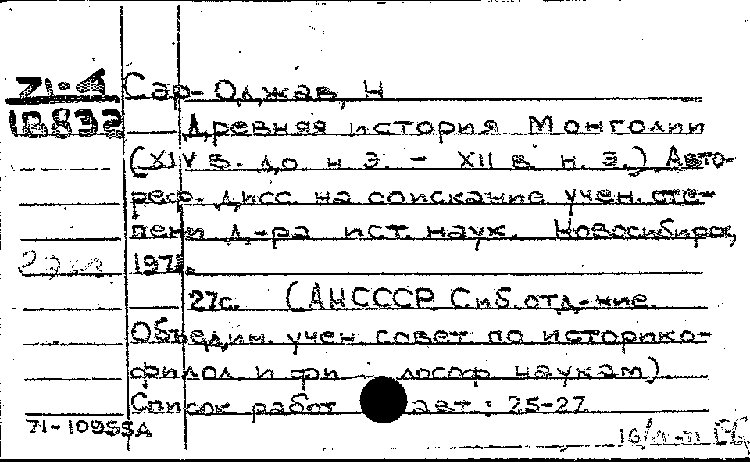 71-4 Сэр-Оджав, Н
18832 Древняя история Монголии
(XIV в. до н. э. - XII в н. э.) Авто-
реф. дисс. на соискание учен. сте-
пени д-ра ист. наук. Новосибирск,
2 экз 1971.
27с. (АН СССР Сиб. отд-ние.
Объедин. учен. совет по историко-
филол. и фи лософ наукам)
Список работ авт: 25-27
71-10955А